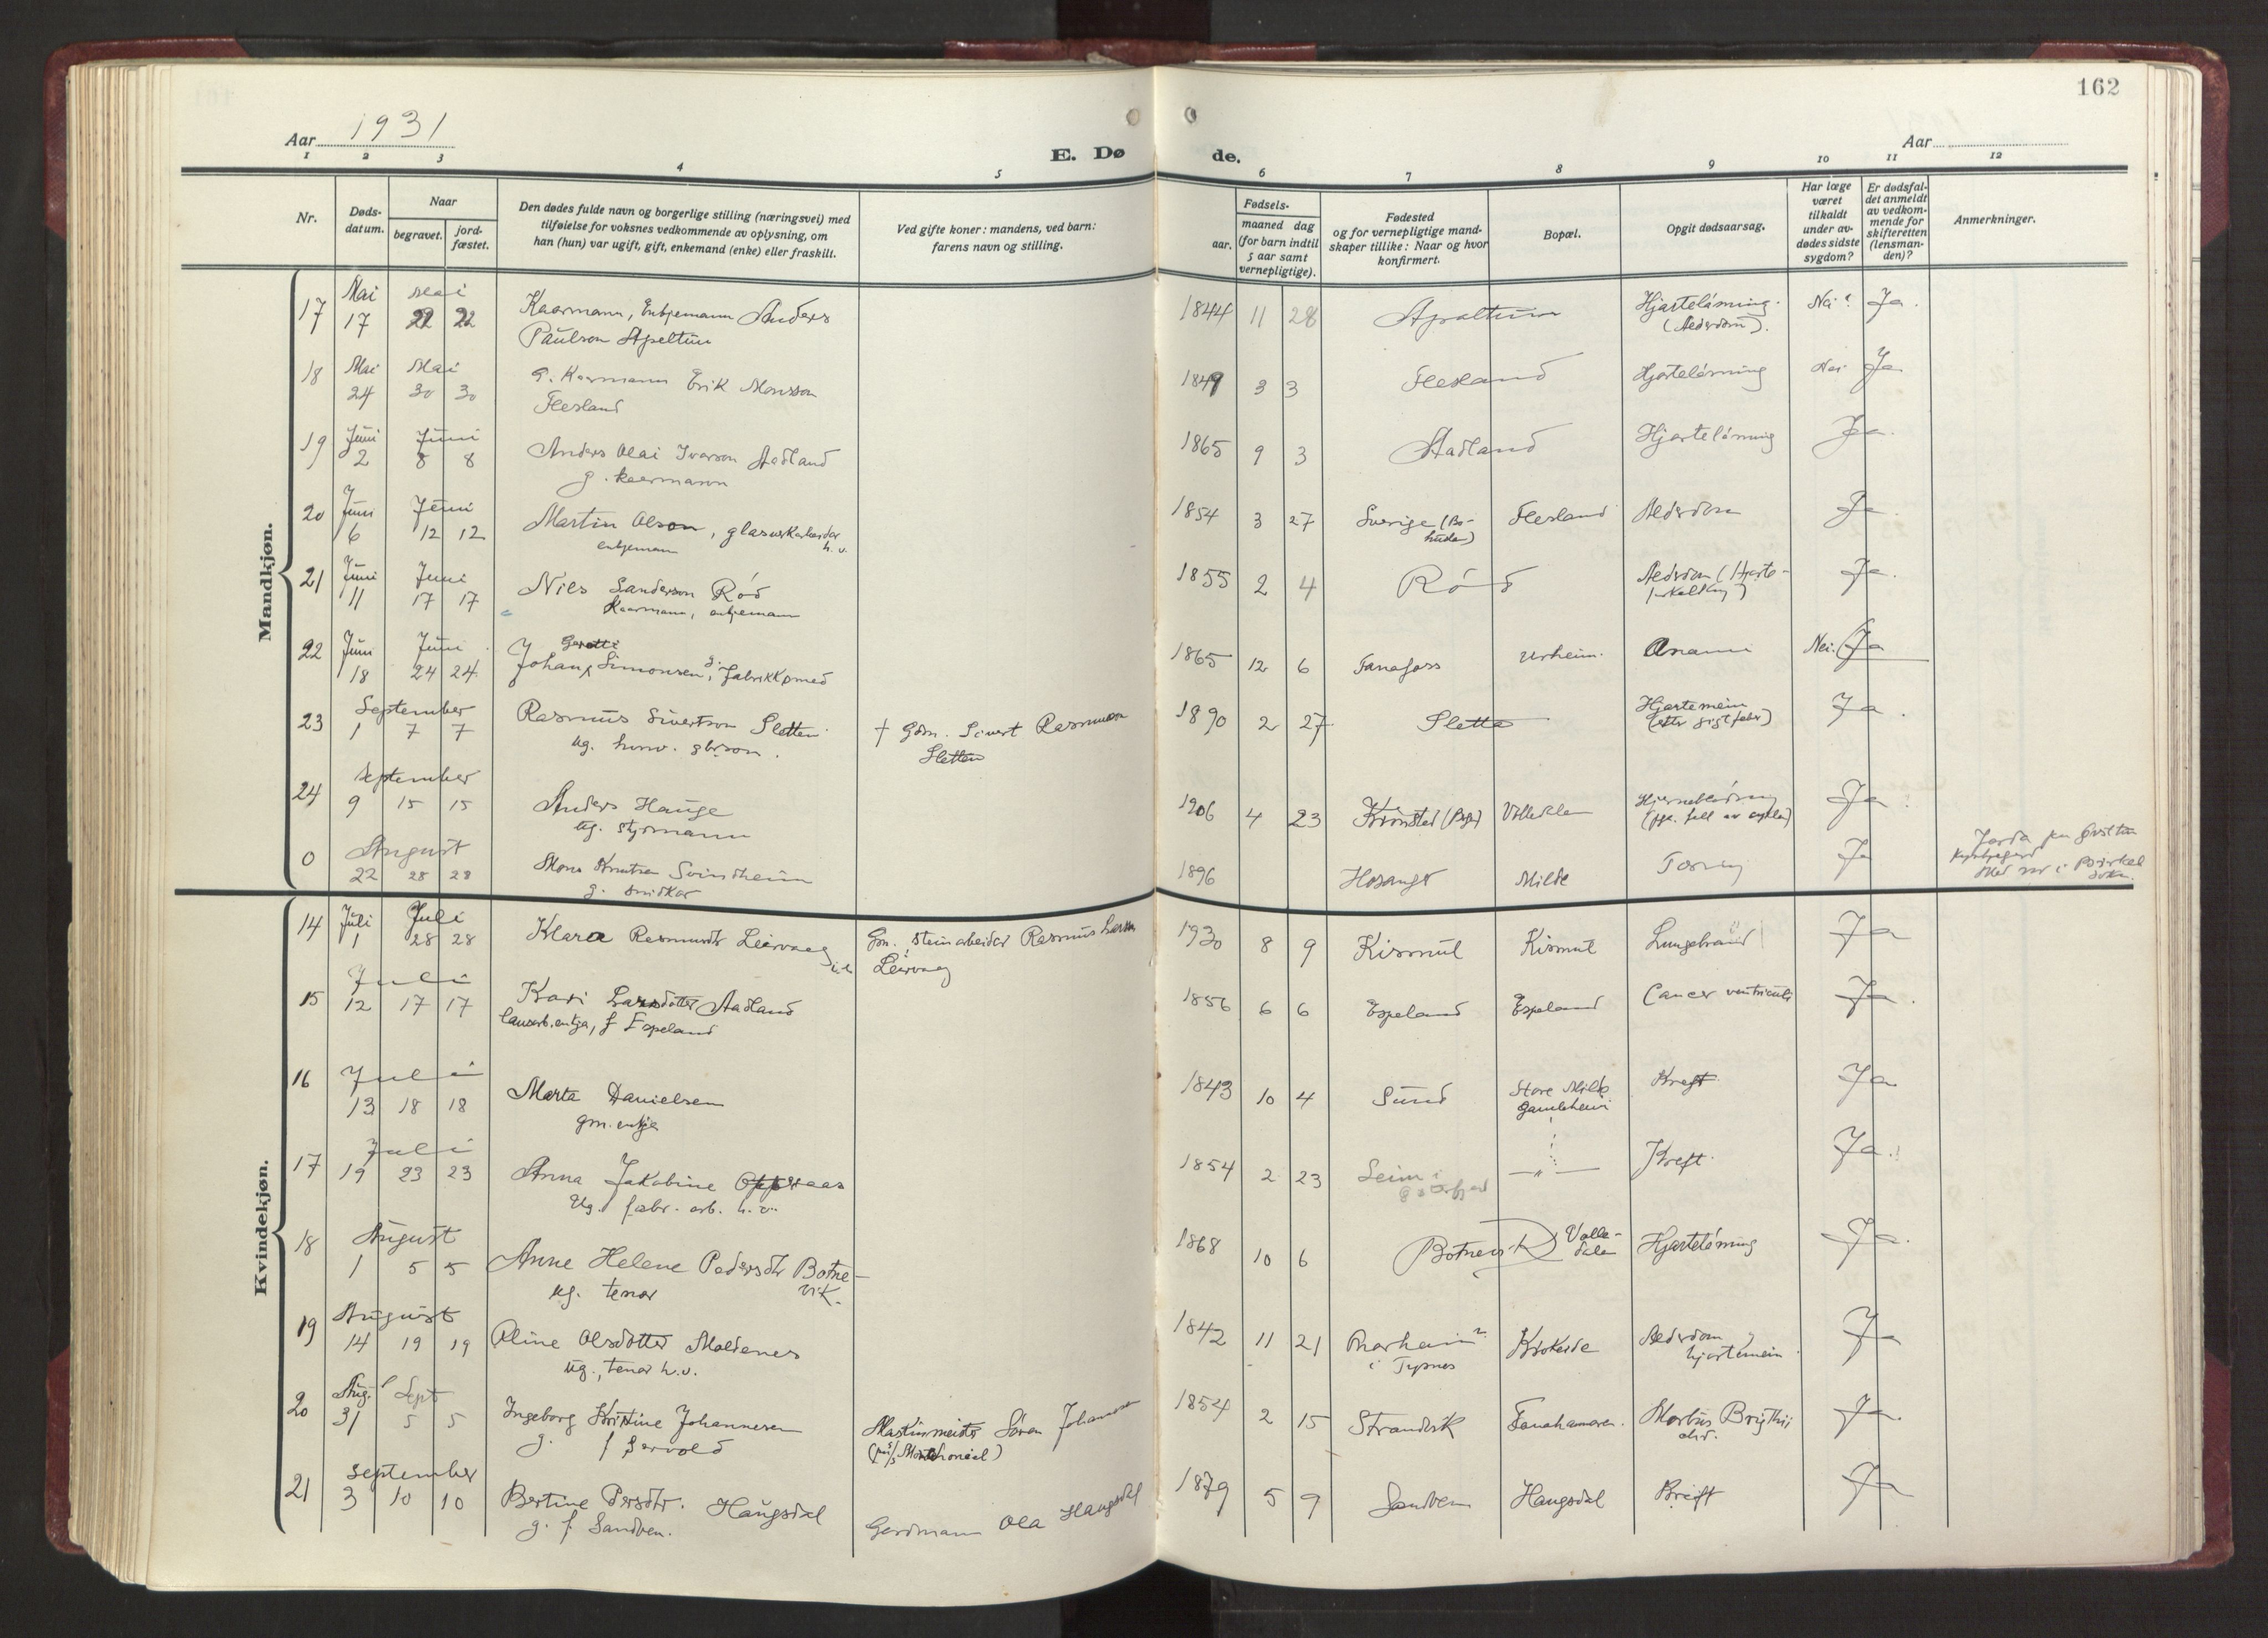 162
Aar 1931
E. Dø
de.
Aar
1 2 3 4 5 6 7 8 9 10 11 12
Nr.
Døds-
datum.
Naar
begravet.
jord-
fæstet.
Den dødes fulde navn og borgerlige stilling (næringsvei) med
tilføielse for voksnes vedkommende av oplysning, om
han (hun) var ugift, gift, enkemand (enke) eller fraskilt.
Ved gifte koner: mandens, ved barn:
farens navn og stilling.
Fødsels-
aar.
maaned dag
(for barn indtil
5 aar samt
vernepligtige).
Fødested
og for vernepligtige mand-
skaper tillike: Naar og hvor
konfirmert.
Bopæl.
Opgit dødsaarsag.
Har læge
været
tilkaldt
under av-
dødes sidste
sygdom?
Er dødsfal-
det anmeldt
av vedkom-
mende for
skifteretten
(lensman-
den)?
Anmerkninger.
Mandkjøn.
17 Mai 17 Mai 22 22 Kaarmann, Enkjemann Anders
Paulson Apeltun
1844 11 28 Apeltun Hjartelámning. (Alderdom). Nei? Ja.
18 Mai 24 Mai 30 30 G. Kaarmann Erik Monsson
Flesland
1849 3 3 Flesland Hjartelámning Nei Ja
19 Juni 2 Juni 8 8 Anders Olai Ivarson Aadland
g. kaarmann
1865 9 3 Aadland Hjartelámning Ja.
20 Juni 6 Juni 12 12 Martin Olson, glasverkarbeidar
enkjemann h. v.
1854 3 27 Sverige Flesland Alderdom Ja.
21 Juni 11 Juni 17 17 Nils Sanderson Rød
Kaarmann, enkjemann
1855 2 4 Rød Alderdom (Hjarte- Ja.
22 Juni 18 Juni 24 24 Johan Simonsen, g. fabrikksmed
1865 12 6 Fanafoss Urheim. Anæmi Nei. Ja
23 September 1 7 7 Rasmus Sivertson Sletten
ug.
† Gbm. Sivert Rasmusson
Sletten
1890 2 27 Sletta Hjartemein
(etter gigtfeber) Ja.
24 September 9 15 15 Anders Hauge
ug. styrmann
1906 4 23 Kronstad Vølledalen Ja.
0 August 22 28 28 Mons Knutsen Svindheim
g. snikkar
1896 Hosanger Milde Ja
Kvindekjøn.
14 Juli 1 Juli 28 28 Klara Rasmusdtr Leirvaag
Gm. steinarbeidar Rasmus Larsen
Leirvaag
1930 8 9 Kismul Kismul Ja
15 Juli 12 17 17 Kari Larsdotter Aadland
enkja, f Espeland
1856 6 6 Espeland Espeland Cancer ventriculi Ja.
16 Juli 13 18 18 Marta Danielsen
gm. enkje
1843 10 4 Sund Store Milde
Gamleheim Kreft Ja
17 Juli 19 23 23 Anna Jakobine Oppsaas
Ug. fabr. arb. h. v.
1854 2 23 Seim i — „ — Kreft. Ja.
18 August 1 5 5 Anne Helene Pedersdtr Botne-
vik.
ug. tenar
1868 10 6 Botnevik Vølle-
dalen Hjartelámning Ja.
19 August 14 19 19 Oline Olsdotter Moldenes
ug., tenar h.v.
1842 11 21 i Tysnes Krokeide Alderdom,
hjartemein Ja
20 Aug. 31 Sept 5 5 Ingeborg Kristine Johannesen
g.
Maskinmeister Søren Johannesen
1854 2 15 Strandvik Fanahamaren. Morbus Brigthii
chr. Ja.
21 September 3 10 10 Bertine Persdtr. Haugsdal
g. f Sandven.
Gardmann Ola Haugsdal
1879 5 9 Sandven Haugsdal Ja